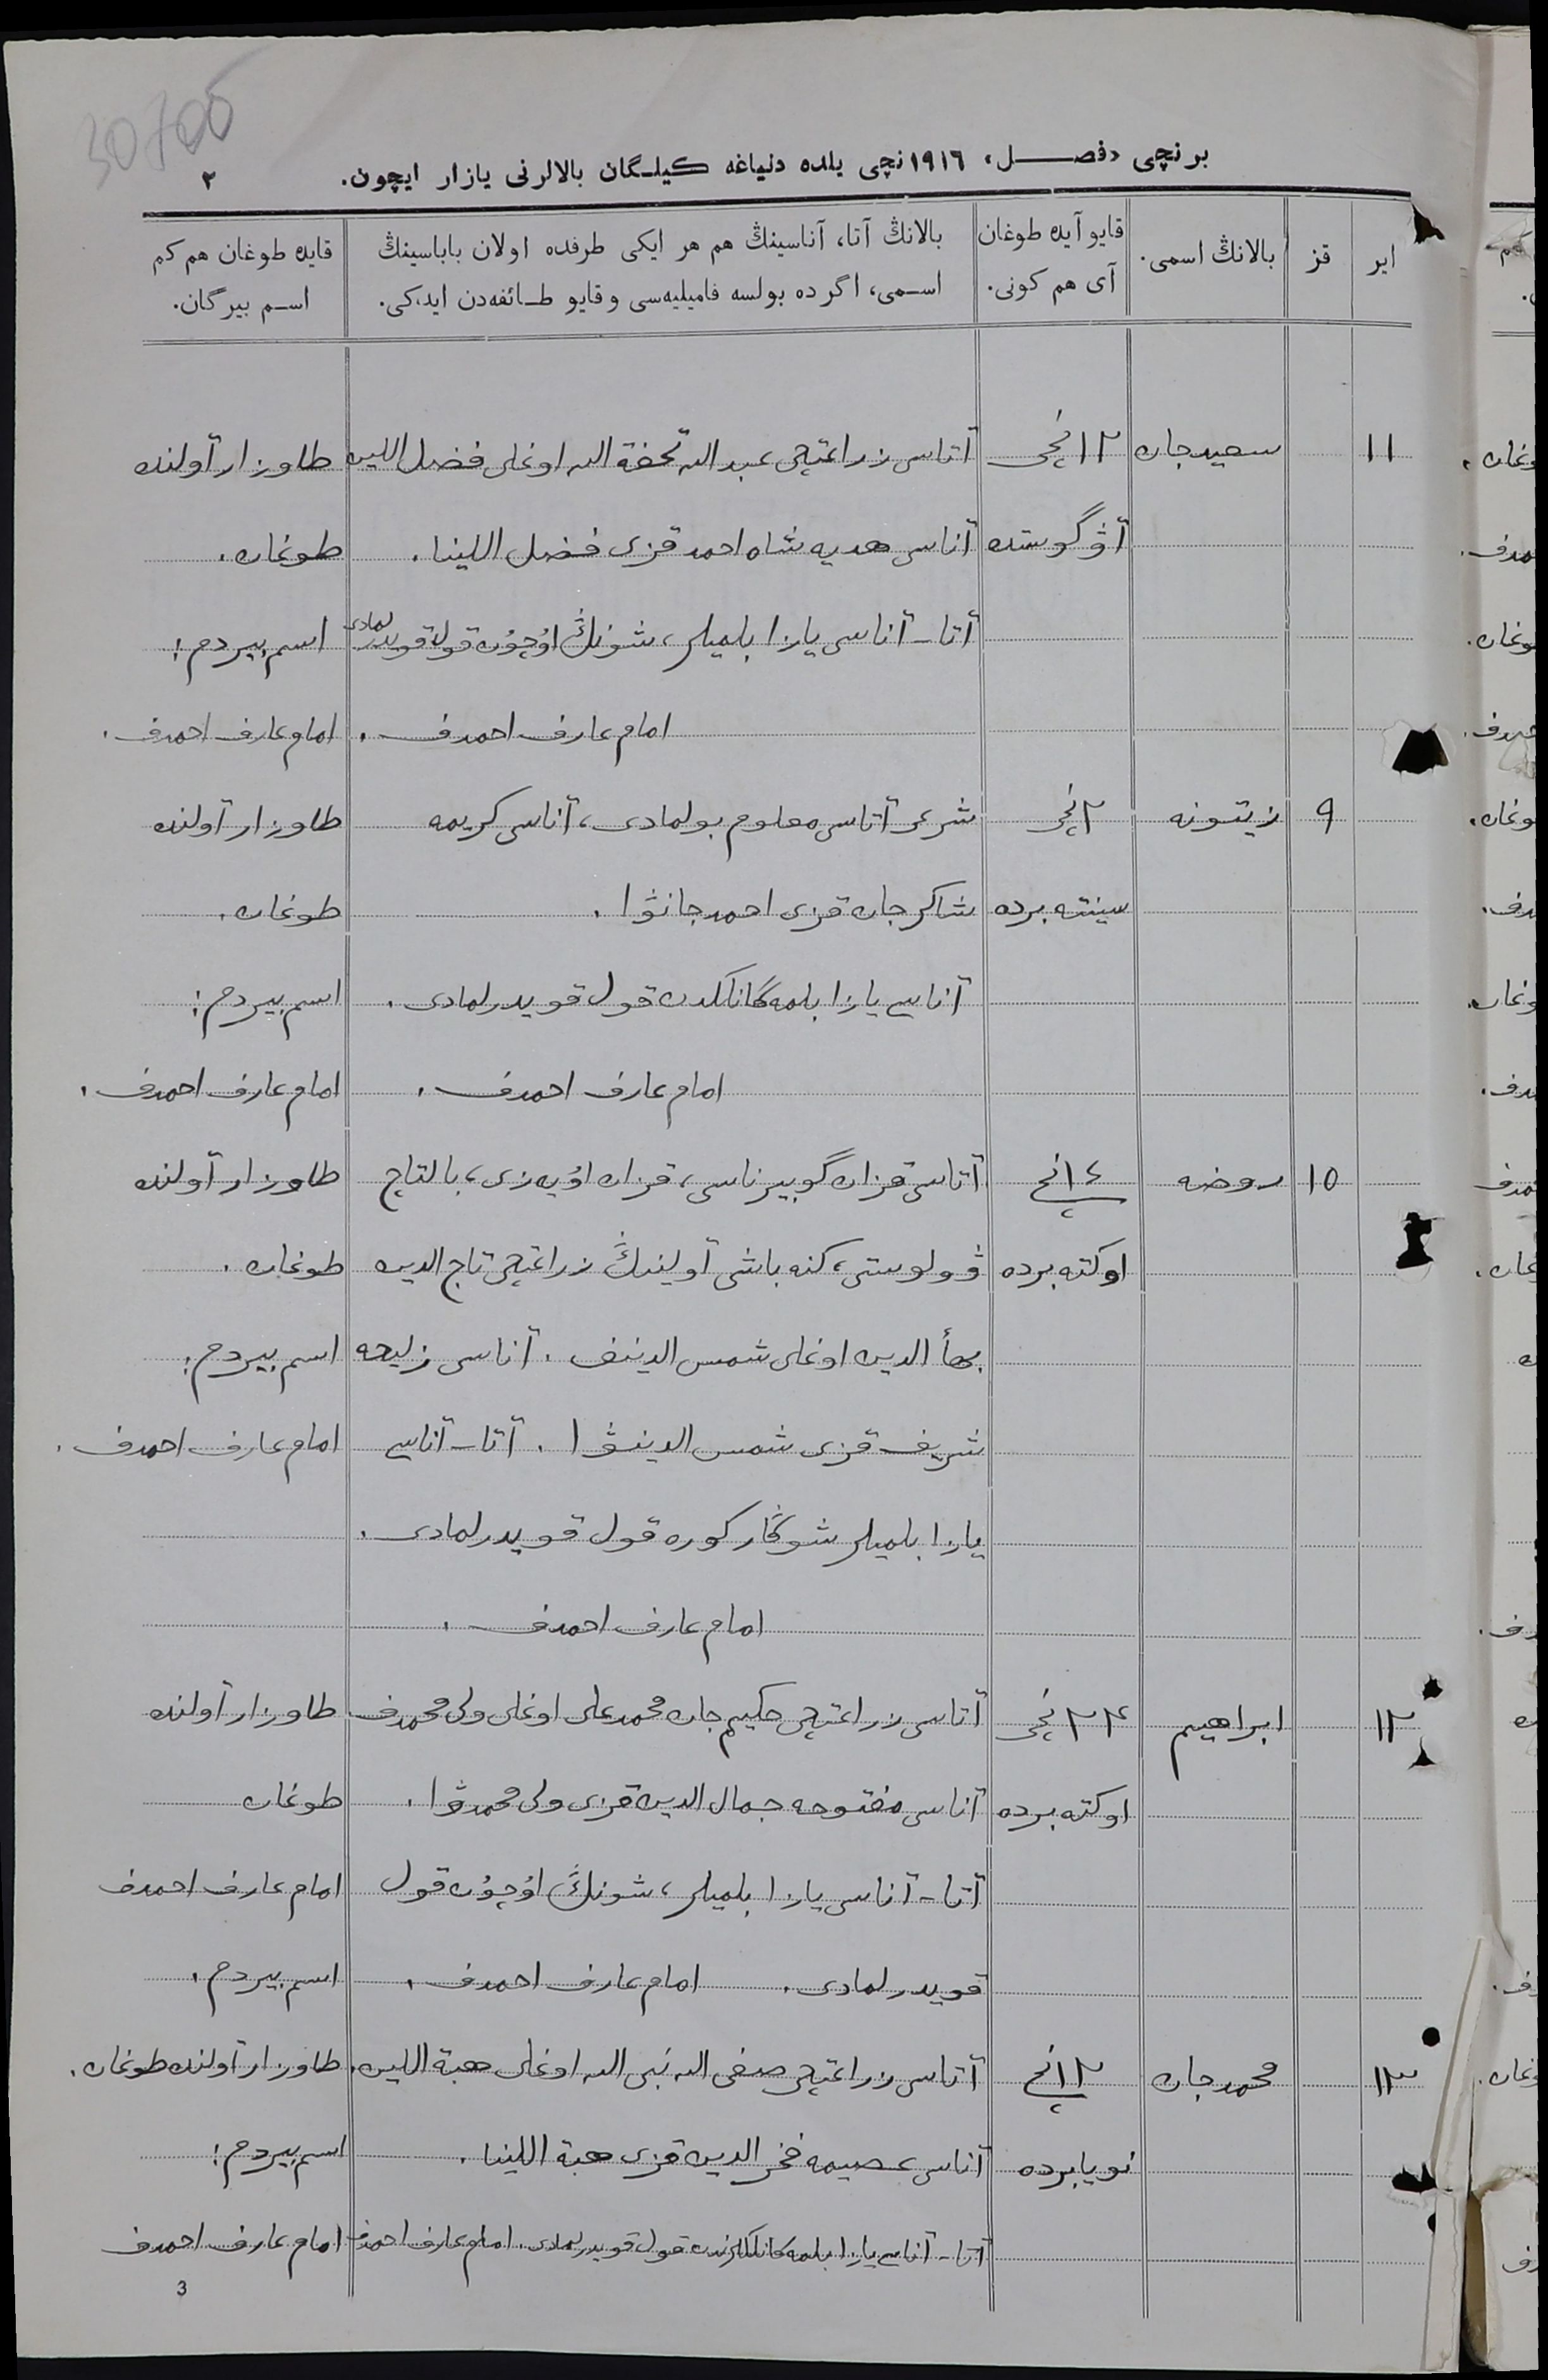 30700
برنچی «فصل» ١٩١٦نچی یلده دنیاغه کیلگان بالالرنی یازار ایچون. ٢
ایر | قز | بالانڭ اسمی. | قایو آیده طوغان | بالانڭ آتا، آناسینڭ هم هر ایکی طرفده اولان باباسینڭ | قایده طوغان هم کم
آی هم کونی. | اسمی، اگر ده بولسه فامیلیه‌سی و قایو طائفه‌دن ایدکی. | اسم بیرگان.
١١ | سعیدجان | ١٢نچی | آتاسی زراعتچی عبدالله تحفة الله اوغلی فضل اللین | طاوزار آولنده
آڤگوستده | آناسی هدیه شاه احمد قزی فضل اللینا. | طوغان.
آتا-آناسی یازا بلمیلر، شونڭ اوُچوُن قول قویدرلمادی | اسم بیردم:
امام عارف احمدف. | امام عارف احمدف.
٩ | زیتونه | ٢نچی | شرعی آتاسی معلوم بولمادی، آناسی کریمه | طاوزار آولنده
سینته برده | شاکرجان قزی احمدجانوا. | طوغان.
آناسی یازا بلمه‌گانلکدن قول قویدرلمادی. | اسم بیردم:
امام عارف احمدف. | امام عارف احمدف.
١٥ | روضه | ١٤نچی | آتاسی قزان گوبیرناسی، قزان اوُیه‌زی، بالتاچ | طاوزار آولنده
اوکته برده | ڤولوستی، کنه باشی آولینڭ زراعتچی تاج الدین | طوغان.
بهأ الدین اوغلی شمس الدینف. آناسی زلیحه | اسم بیردم:
شریف قزی شمس الدینوا. آتا-آناسی | امام عارف احمدف.
یازا بلمیلر شوڭار کوره قول قویدرلمادی.
امام عارف احمدف.
١٢ | ابراهیم | ٢٤نچی | آتاسی زراعتچی حکیم جان محمدعلی اوغلی ولی محمدف | طاوزار آولنده
اوکته برده | آناسی مفتوحه جمال الدین قزی ولی محمدوا. | طوغان
آتا-آناسی یازا بلمیلر، شونڭ اوُچوُن قول | امام عارف احمدف
قویدرلمادی. امام عارف احمدف. | اسم بیردم.
١٣ | محمدجان | ١٢نچی | آتاسی زراعتچی صفی الله نبی الله اوغلی هبة اللین. | طاوزار آولنده طوغان.
نویابرده | آناسی عصیمه فخر الدین قزی هبة اللینا. | اسم بیردم:
آتا-آناسی یازا بلمه‌گانلکلرندن قول قویدرلمادی. امام عارف احمدف | امام عارف احمدف
3